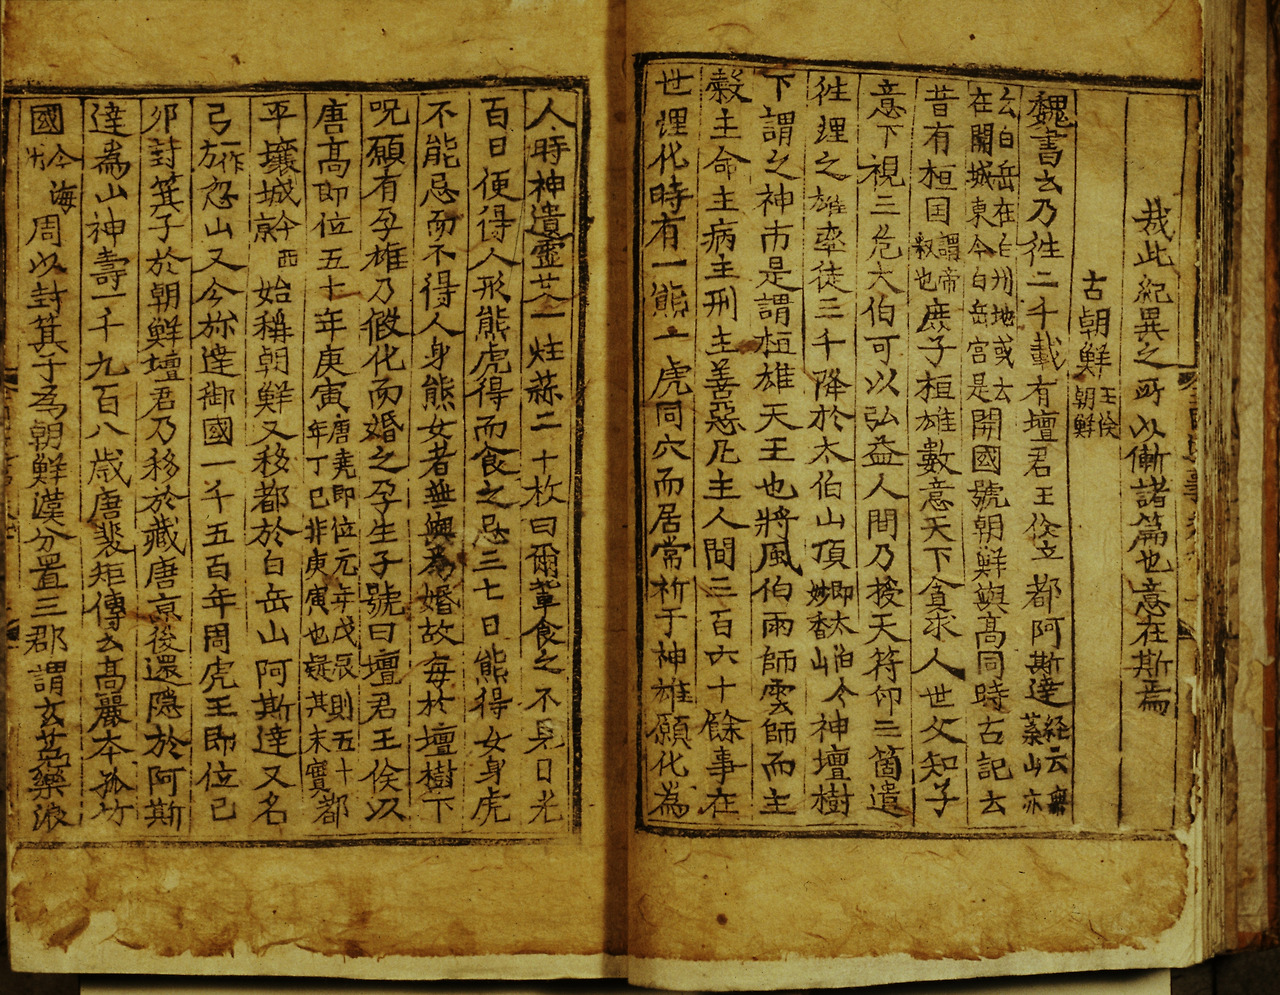 哉此紀異之所以慚諸篇也意在斯焉
古朝鮮 王倹朝鮮
魏書云乃徃二千載有壇君王倹立都阿斯達 経云無葉山亦
云白岳在白州地或云在開城東今白岳宮是 開國號朝鮮與髙同時古記云
昔有桓国 謂帝釈也 庶子桓雄數意天下貪求人世父知子
意下視三危太伯可以弘益人間乃授天符印三箇遣
徃理之雄率徒三千降於太伯山頂 即太伯今妙香山 神壇樹
下謂之神市是謂桓雄天王也將風伯雨師雲師而主
穀主命主病主刑主善惡凡主人間三百六十餘事在
世理化時有一熊一虎同穴而居常祈于神雄願化為
人時神遺霊艾一炷蒜二十枚曰爾軰食之不見日光
百日便得人形熊虎得而食之忌三七日熊得女身虎
不能忌而不得人身熊女者無與為婚故每於壇樹下
呪願有孕雄乃假化而婚之孕生子號曰壇君王倹以
唐髙即位五十年庚寅 唐堯即位元年戊辰則五十年丁巳非庚寅也疑其未實 都
平壤城 今西京 始稱朝鮮又移都於白岳山阿斯達又名
弓 一作方 忽山又今旀達御國一千五百年周虎王即位己
卯封箕子於朝鮮壇君乃移於藏唐京後還隱於阿斯
達為山神壽一千九百八歳唐裴矩傳云高麗本孤竹
國 今海州 周以封箕子為朝鮮漢分置三郡謂玄菟樂浪